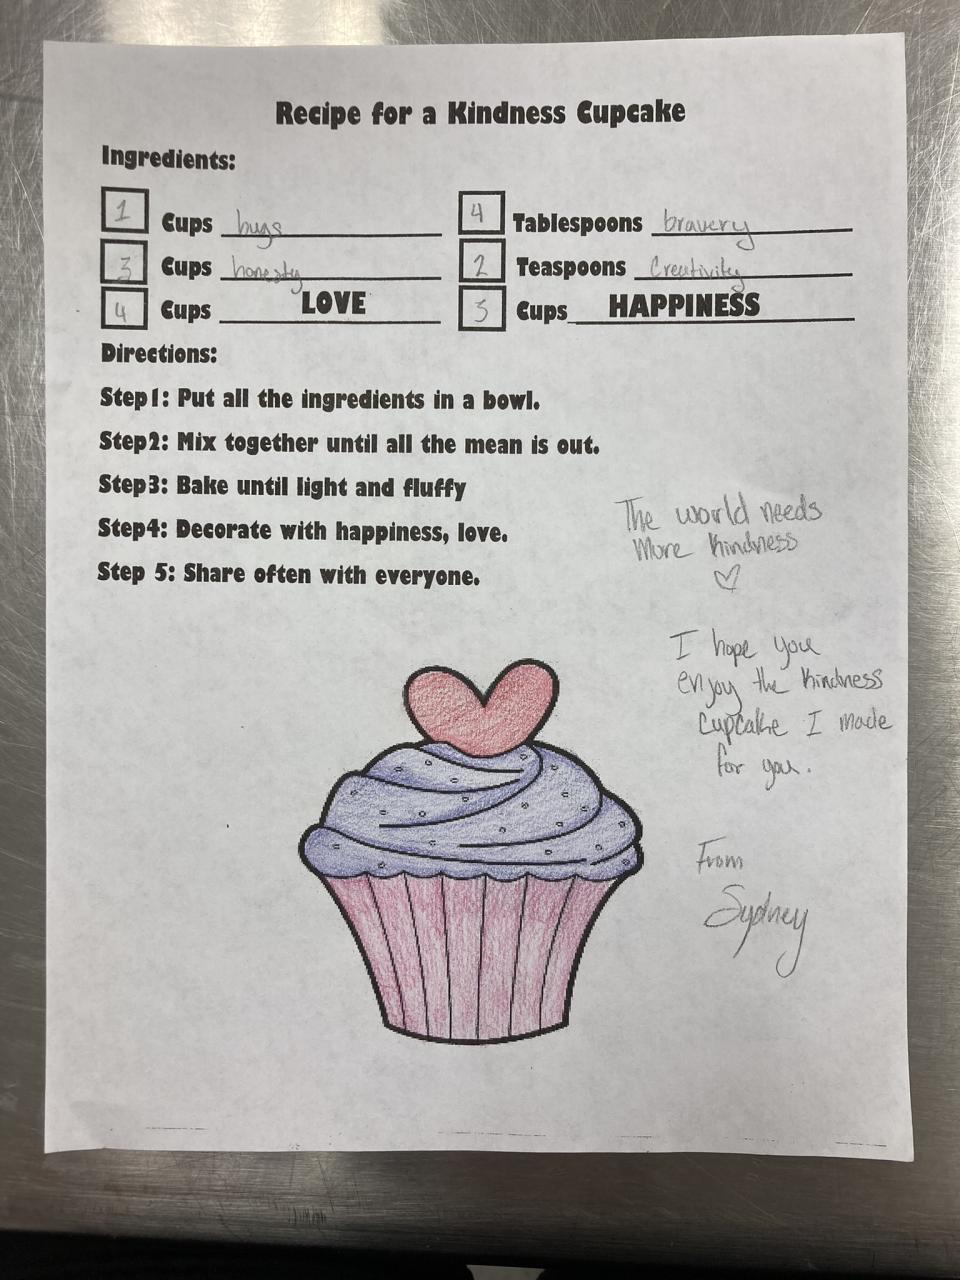 Recipe for a Kindness Cupcake
Ingredients:
1 Cups hugs
4 Tablespoons bravery
3 Cups honesty
2 Teaspoons Creativity
4 Cups LOVE
3 Cups HAPPINESS
Directions:
Step1: Put all the ingredients in a bowl.
Step2: Mix together until all the mean is out.
Step3: Bake until light and fluffy
Step4: Decorate with happiness, love.
Step 5: Share often with everyone.
The world needs
More kindness
♡
I hope you
enjoy the kindness
cupcake I made
for you.
From
Sydney